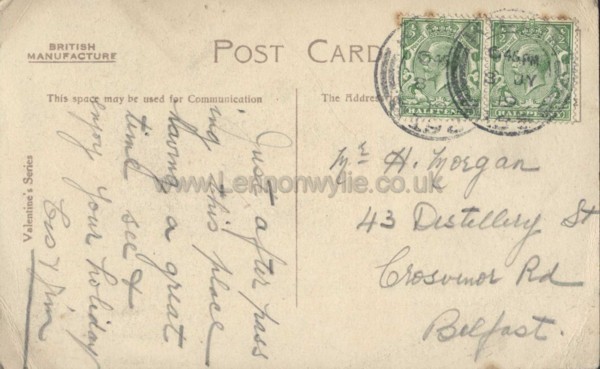 BRITISH
MANUFACTURE
POST CARD
This space may be used for Communication
The Address to
Valentine's Series
Just after pass
ing this place
having a great
time see &
enjoy your holiday
Cis & Jim
Mr H. Morgan
43 Distillery St
Grosvenor Rd
Belfast.
6 45 PM
JY
HALFPENNY
HALFPENNY
www.Lennonwylie.co.uk